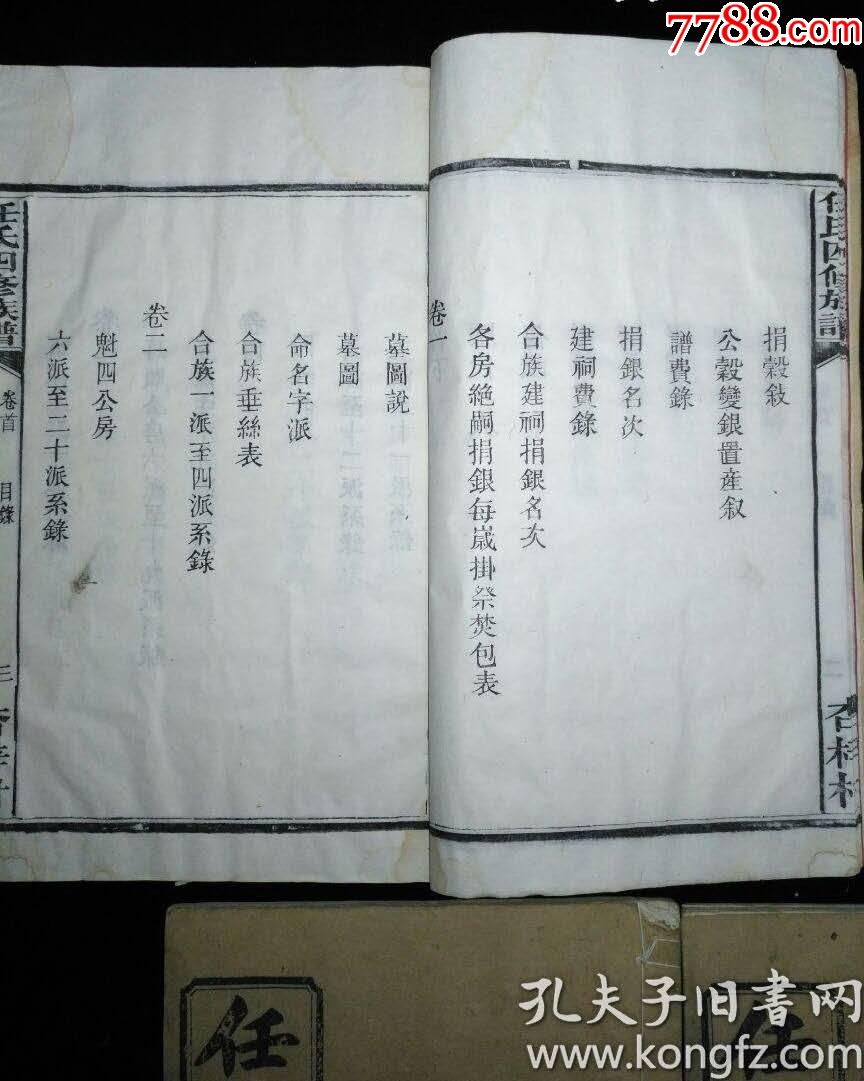 7788.com
任氏四修族譜
二
捐穀敍
公穀變銀置産叙
譜費錄
捐銀名次
建祠費錄
合族建祠捐銀名次
各房絶嗣捐銀每歲掛祭焚包表
卷一
墓圖說
墓圖
命名字派
合族垂絲表
合族一派至四派系錄
卷二
魁四公房
六派至二十派系錄
任氏四修族譜
卷首
目錄
三
任
任
孔夫子旧书网
www.kongfz.com